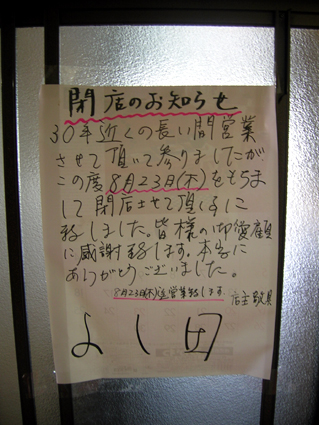 閉店のお知らせ
30年近くの長い間営業
させて頂いて参りましたが
この度8月23日(木)をもちま
して閉店させて頂くに
致しました。皆様の御愛顧
に感謝致します。本当に
ありがとうございました。
8月23日(木)迄営業致します。
店主敬具
よし町